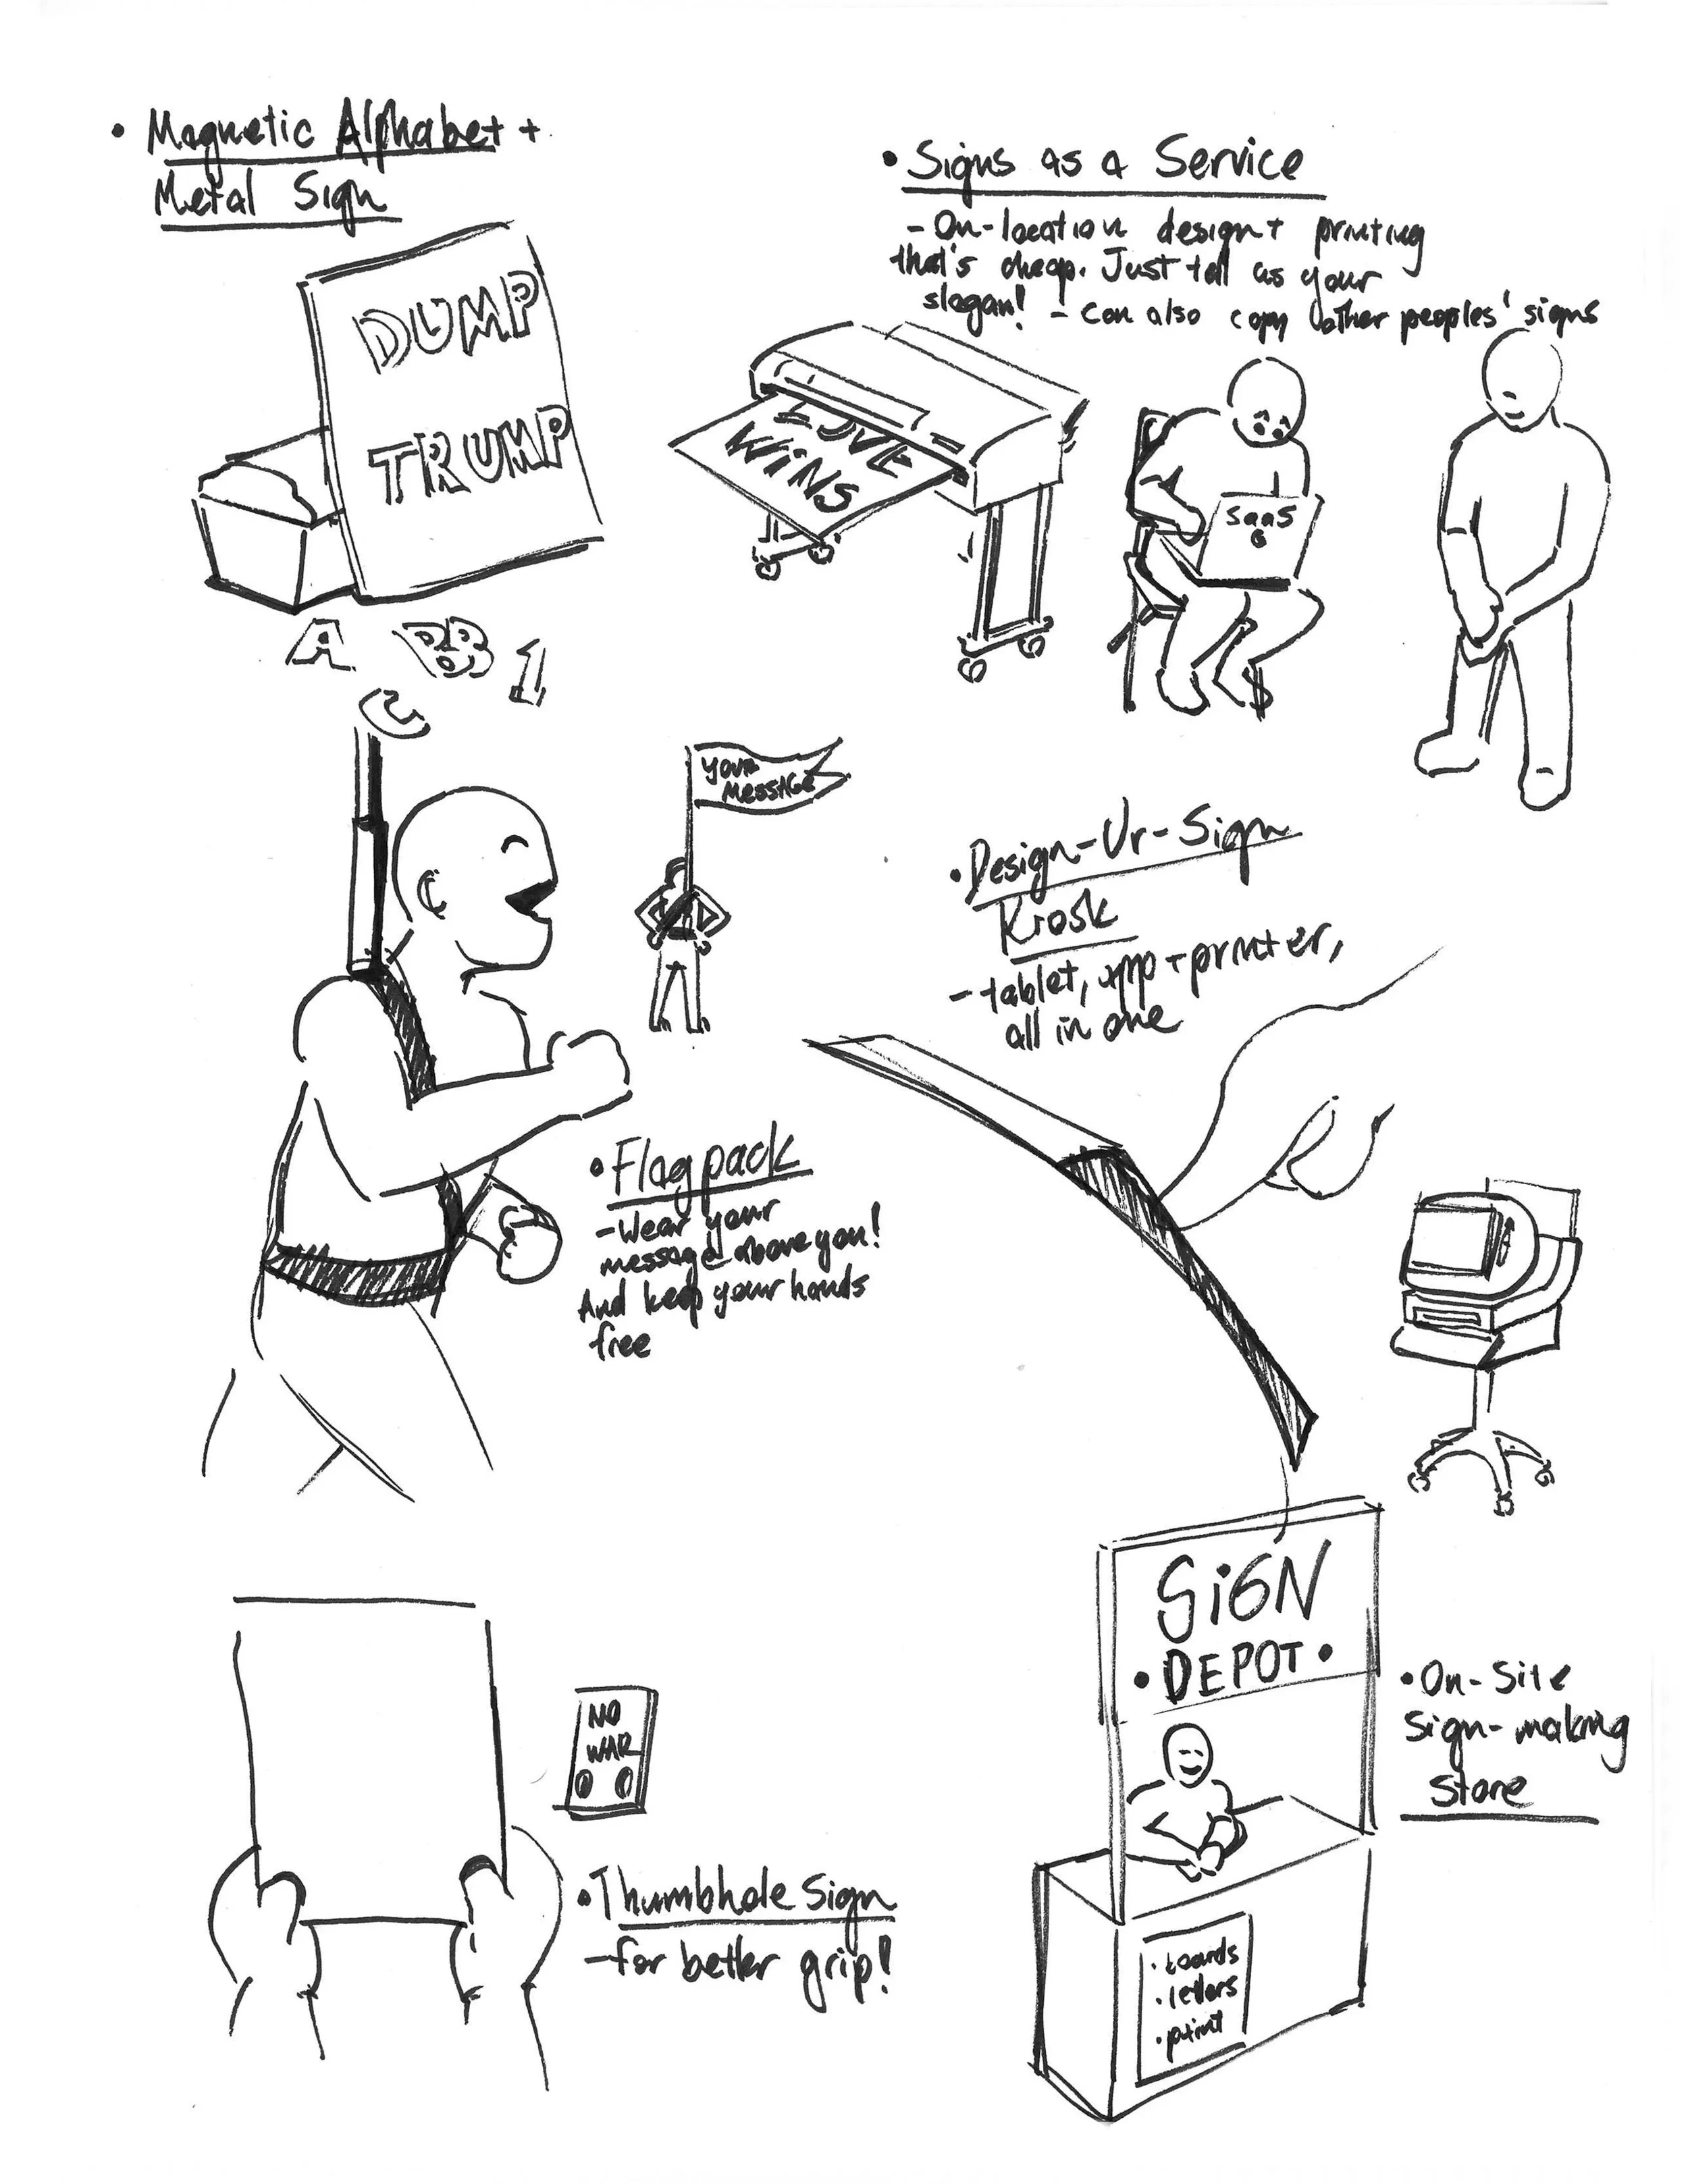 • Magnetic Alphabet +
Metal Sign
DUMP
TRUMP
A B 1
C
• Signs as a Service
- On-location design + printing
that's cheap. Just tell us your
slogan! - Can also copy other peoples' signs
LOVE
WINS
SaaS
YOUR
MESSAGE
• Flagpack
- Wear your
message above you!
And keep your hands
free
• Design-Ur-Sign
Kiosk
- tablet, app + printer,
all in one
NO
WAR
• Thumbhole Sign
- for better grip!
SiGN
• DEPOT •
• boards
• letters
• paint
• On-Site
Sign-making
Store